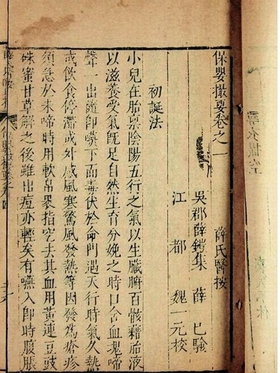 保嬰撮要卷之一 薛氏醫按
吳郡薛鎧集 薛已驗
江都 魏一元校
初誕法
小兒在胎稟陰陽五行之氣以生臟腑百骸藉胎液
以滋養受氣既足自然生育分娩之時口含血塊啼
聲一出隨卽嚥下而毒伏於命門遇天行時氣久熱
或飲食停滯或外感風寒驚風發熱等因發為瘡疹
須急於未啼時用軟帛裹指挖去其血用黃連豆豉
硃蜜甘草解之後雖出痘亦輕矣有嚥入卽時腹脹